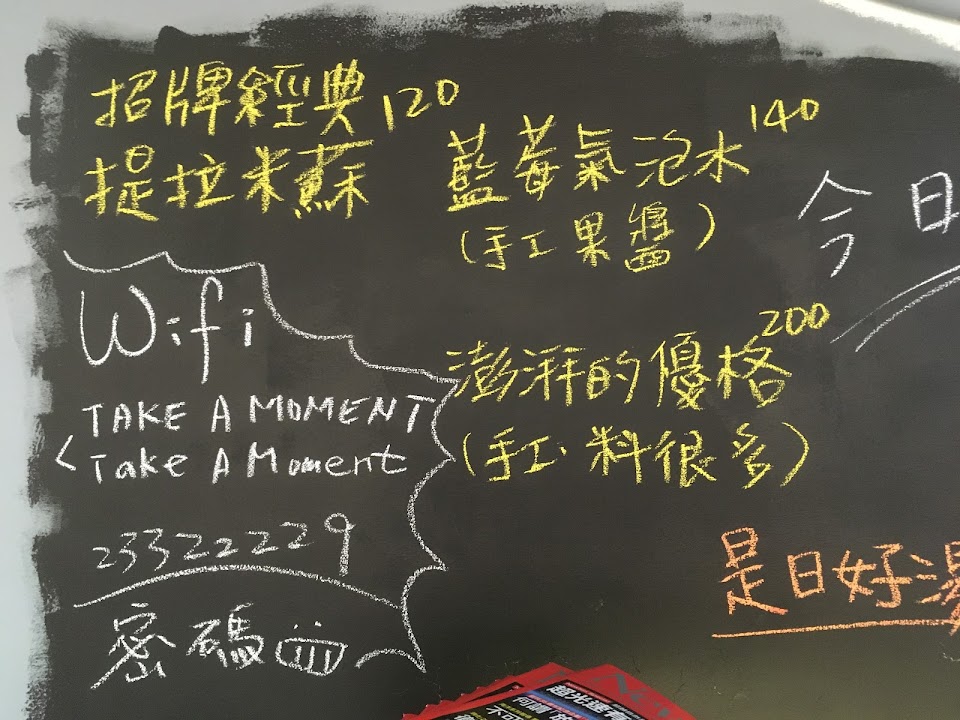 招牌經典 120
提拉米蘇
藍莓氣泡水 140
(手工果醬)
今日
Wifi
TAKE A MOMENT
Take A Moment
23322229
密碼
澎湃的優格 200
(手工 料很多)
是日好湯
超光速